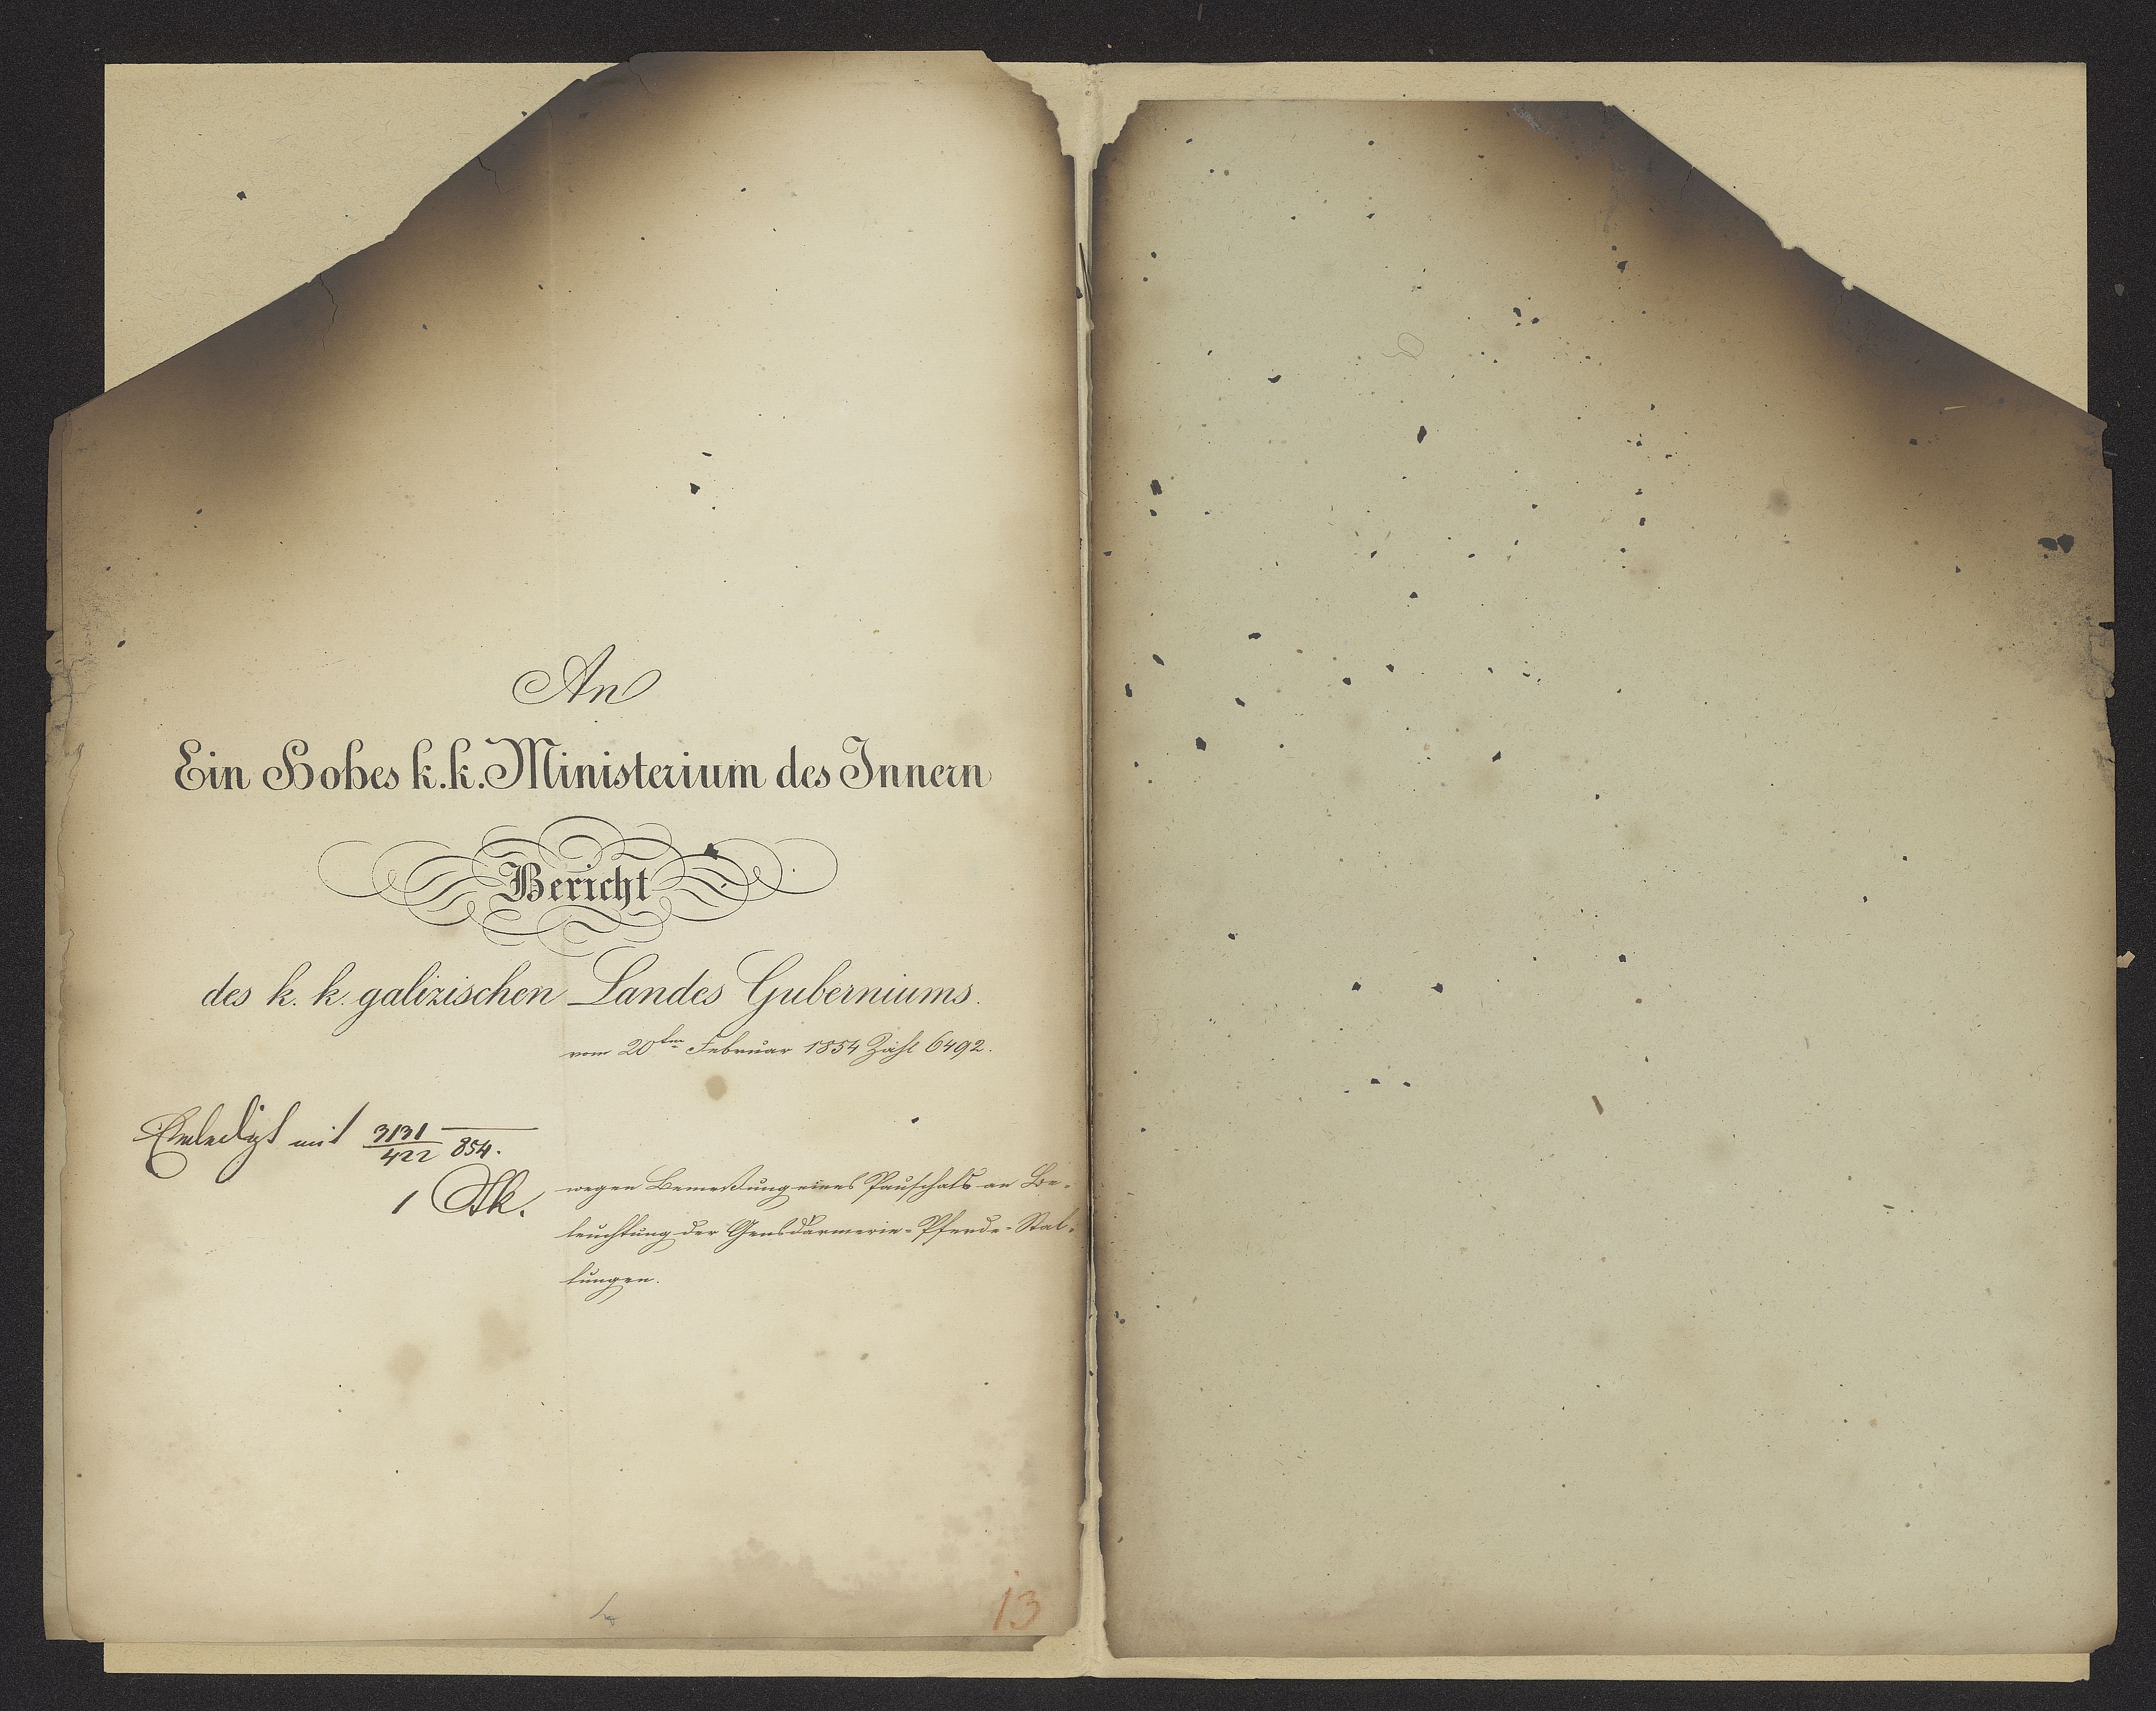 An
Ein Hohes k. k. Ministerium des Innern
Bericht
des k. k. galizischen Landes Guberniums.
vom 20ten Februar 1854 Zahl 6492.
Erledigt mit 3131/422 854.
1
wegen Bemeßung eines Pauschals an Be-
leuchtung der Gensdarmerie-Pferde-Stal-
lungen.
13